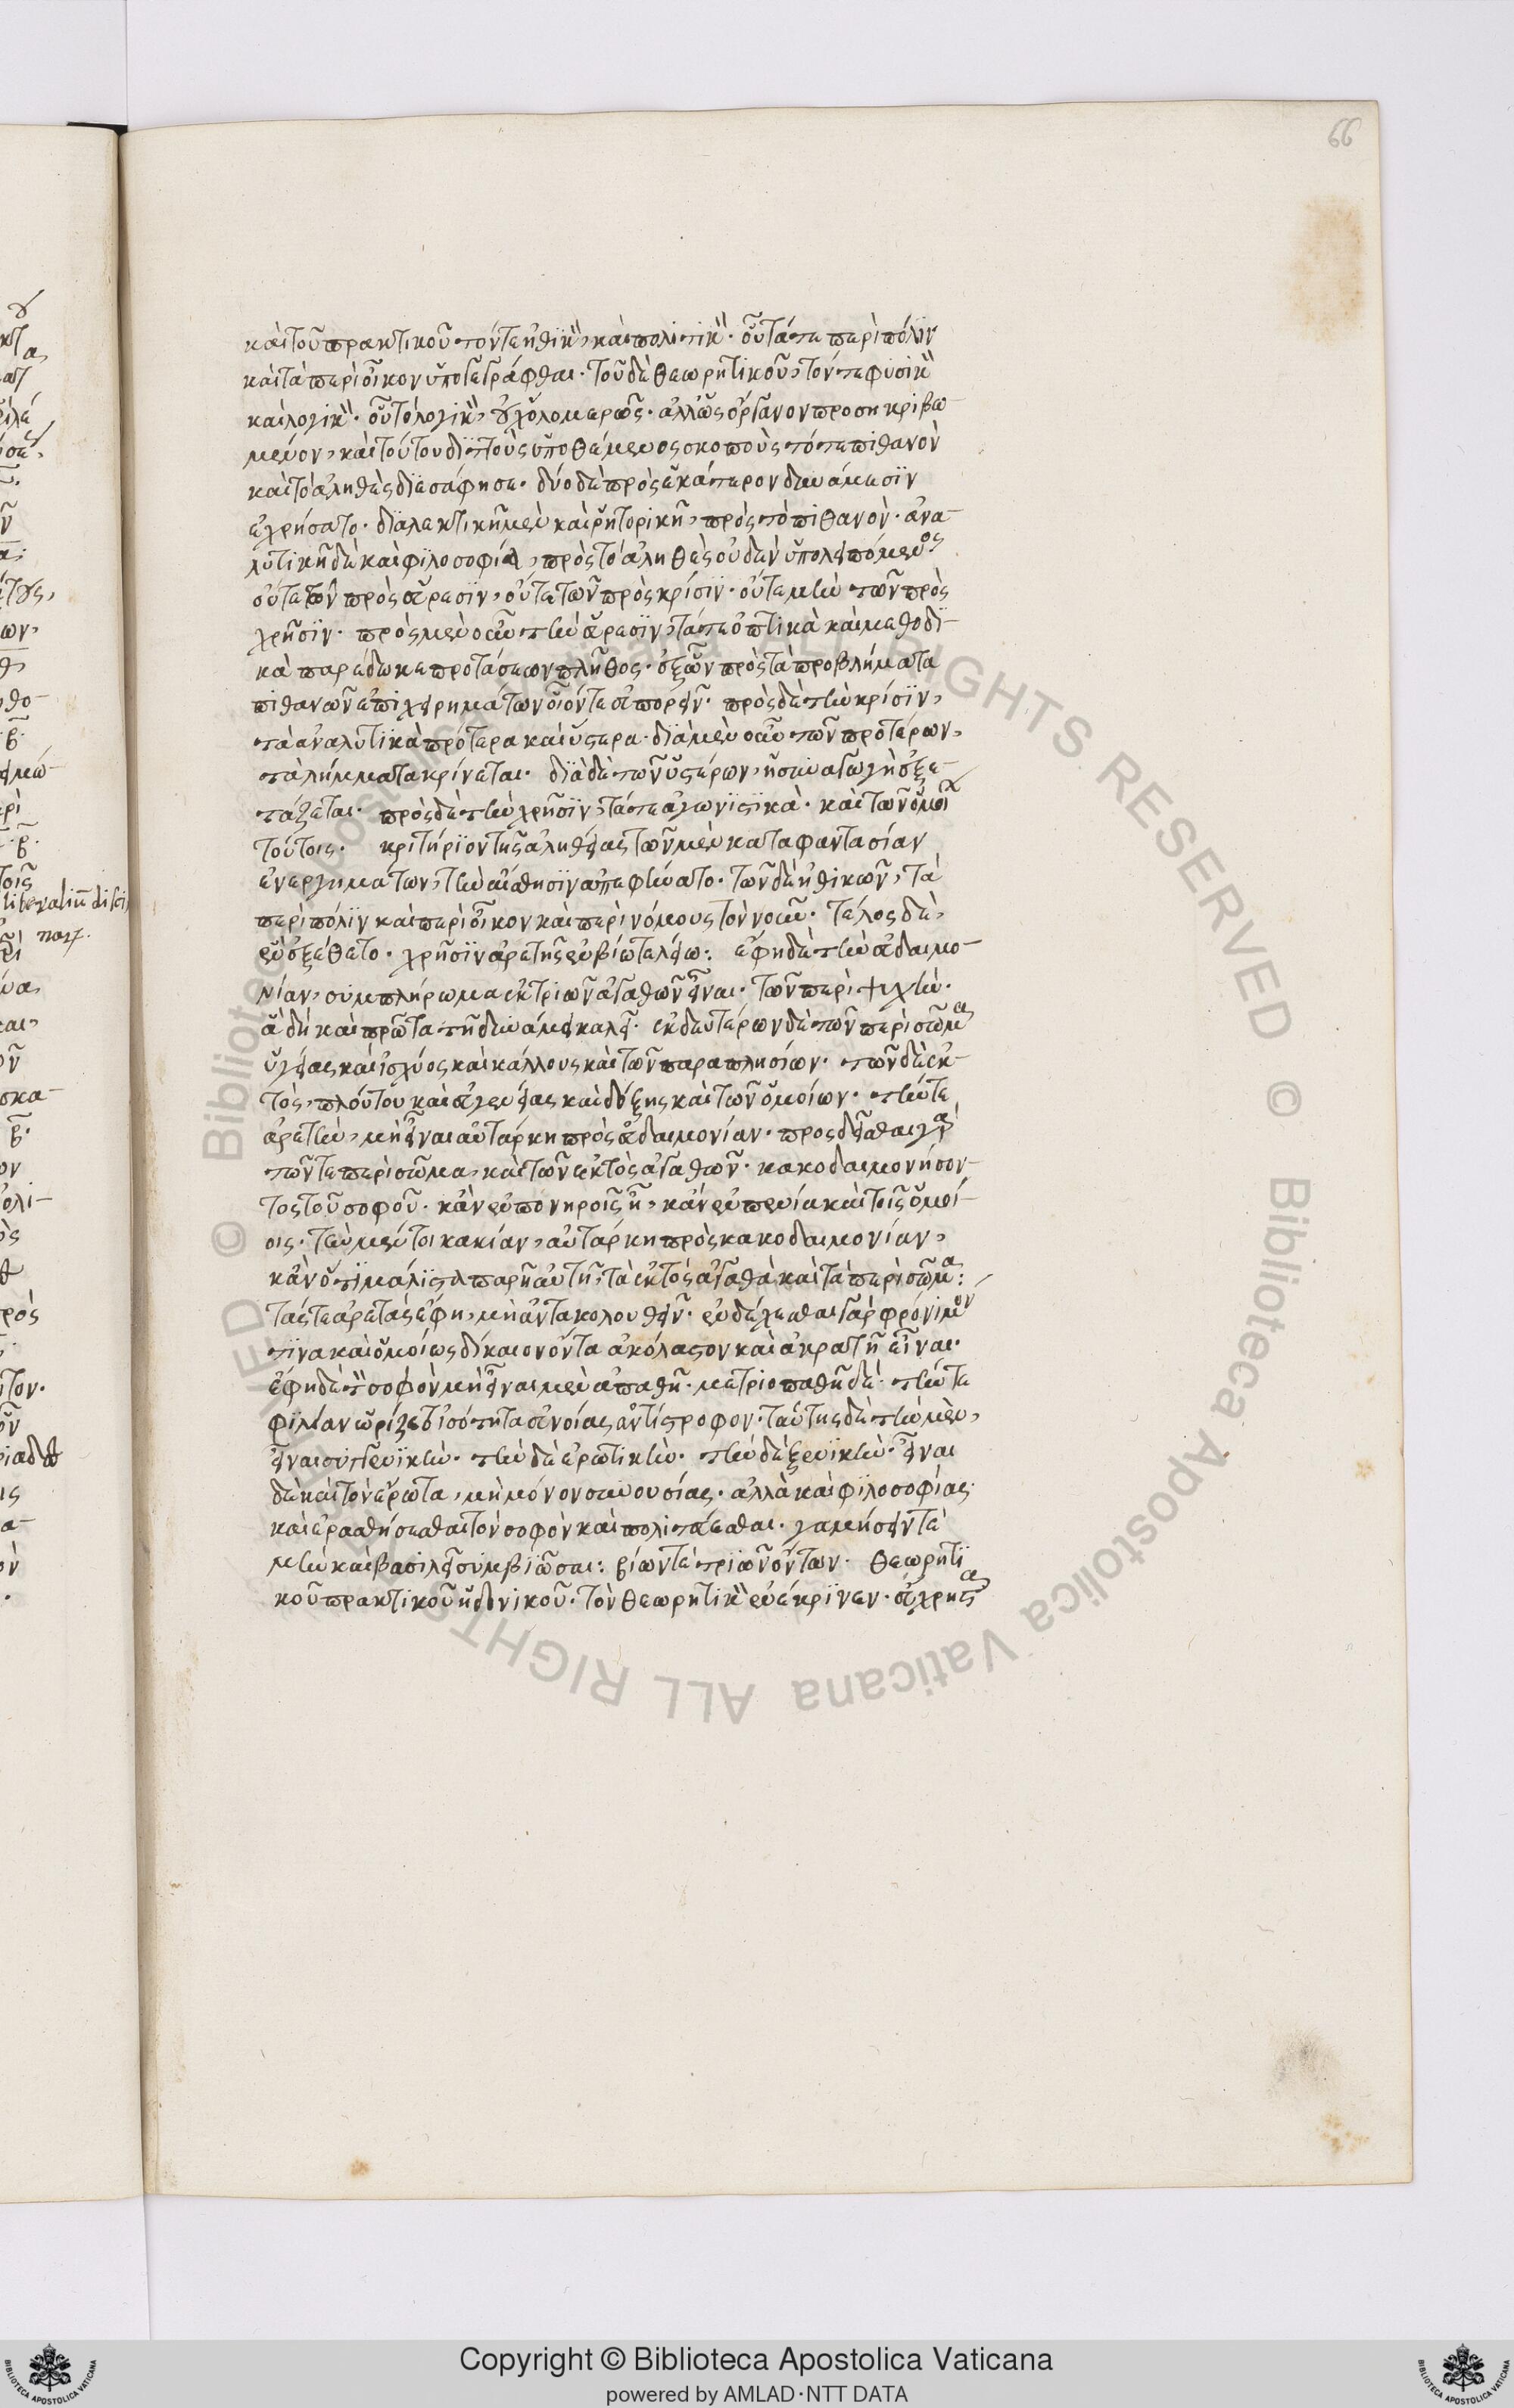 66
καὶ τοῦ πρακτικοῦ τόν τε ἠθϊκὸν, καὶ πολιτικὸν. οὗ τά τε περὶ πόλϊν
καὶ τὰ περὶ οἶκον ὑπογεγράφθαι. τοῦ δὲ θεωρητικοῦ, τόν τε φυσικὸν
καὶ λογικὸν. οὗ τὸ λογικὸν, οὐχ ὁλομερῶς. ἀλλ' ὡς ὄργανον προσηκριβω-
μένον, καὶ τούτου διττοὺς ὑποθέμενος σκοποὺς τό τε πιθανὸν
καὶ τὸ ἀληθὲς διεσάφησε. δύο δὲ πρὸς ἑκάτερον δυνάμεσϊν
ἐχρήσατο. διαλεκτικῇ μὲν καὶ ῥητορικῇ, πρὸς τὸ πιθανὸν. ἀνα-
λυτικῇ δὲ καὶ φιλοσοφία, πρὸς τὸ ἀληθὲς οὐδὲν ὑπολειπόμενος
οὔτε τῶν πρὸς εὕρεσιν, οὔτε τῶν πρὸς κρίσιν. οὔτε μὴν τῶν πρὸς
χρῆσϊν. πρὸς μὲν οὖν τὴν εὕρεσϊν, τά τε ὀπτικὰ καὶ μεθοδϊ-
κὰ παρέδωκε προτάσεων πλῆθος. ἐξ ὧν πρὸς τὰ προβλήματα
πιθανῶν ἐπιχειρημάτων οἷόν τε εὐπορεῖν. πρὸς δὲ τὴν κρίσϊν,
τὰ ἀναλυτικὰ πρότερα καὶ ὕστερα. διὰ μὲν οὖν τῶν προτέρων,
τὰ λήμματα κρίνεται. διὰ δὲ τῶν ὑστέρων, ἡ συναγωγὴ ἐξε-
τάζεται. πρὸς δὲ τὴν χρῆσϊν, τά τε ἀγωνιστικὰ. καὶ τῶν ὁμοί
τούτοις. κριτήριον τῆς ἀληθείας τῶν μὲν κατα φαντασίαν
ἐνεργημάτων, τὴν αἴσθησϊν ἀπεφήνατο. τῶν δὲ ἠθικῶν, τὰ
περὶ πόλϊν καὶ περὶ οἶκον καὶ περὶ νόμους τὸν νοῦν. τέλος δὲ,
ἓν ἐξέθετο. χρῆσϊν ἀρετῆς ἐν βίω τελείω: ἔφη δὲ τὴν εὐδαιμο-
νίαν, συμπλήρωμα ἐκ τριῶν ἀγαθῶν εἶναι. τῶν περὶ ψυχὴν.
ἃ δὴ καὶ πρῶτα τῇ δυνάμει καλεῖ. ἐκ δευτέρων δὲ τῶν περὶ σῶμα
ὑγείας καὶ ἰσχύος καὶ κάλλους καὶ τῶν παραπλησίων. τῶν δὲ ἐκ-
τὸς, πλούτου καὶ εὐγενείας καὶ δόξης καὶ τῶν ὁμοίων. τήν τε
ἀρετὴν, μὴ εἶναι αὐτάρκη πρὸς εὐδαιμονίαν. προσδεῖσθαι γὰρ
τῶν τε περὶ σῶμα, καὶ τῶν ἐκτὸς ἀγαθῶν. κακοδαιμονήσον-
τος τοῦ σοφοῦ. κἂν ἐν πονηροῖς ᾖ, κἂν ἐν πενία καὶ τοῖς ὁμοί-
οις. τὴν μέντοι κακίαν, αὐτάρκη πρὸς κακοδαιμονίαν,
κἂν ὅτϊ μάλϊστα παρῇ αὐτῇ, τὰ ἐκτὸς ἀγαθὰ καὶ τὰ περὶ σῶμα:
τάς τε ἀρετὰς ἔφη, μὴ ἀντακολουθεῖν. ἐνδέχεσθαι γὰρ φρόνιμον
τϊνα καὶ ὁμοίως δίκαιον ὄντα ἀκόλαστον καὶ ἀκρατῆ εἶναι.
ἔφη δὲ τὸν σοφὸν μὴ εἶναι μὲν ἀπαθῆ. μετριοπαθῆ δὲ. τήν τε
φϊλίαν ὡρίζετ ἰσότητα εὐνοίας ἀντίστροφον. ταύτης δὲ τὴν μὲν,
εἶναι συγγενϊκὴν. τὴν δὲ ἐρωτικὴν. τὴν δὲ ξενϊκὴν. εἶναι
δὲ καὶ τὸν ἔρωτα, μὴ μόνον συνουσίας. ἀλλὰ καὶ φϊλοσοφίας.
καὶ ἐρασθήσεσθαι τὸν σοφὸν καὶ πολιτεύεσθαι. γαμήσειν τὲ
μὴν καὶ βασιλεῖ συμβϊῶσαι: βίων τὲ τρϊῶν ὄντων. θεωρητϊ
κοῦ πρακτικοῦ ἡδονικοῦ. τὸν θεωρητικὸν ἐνέκρϊνεν. εὔχρηστα